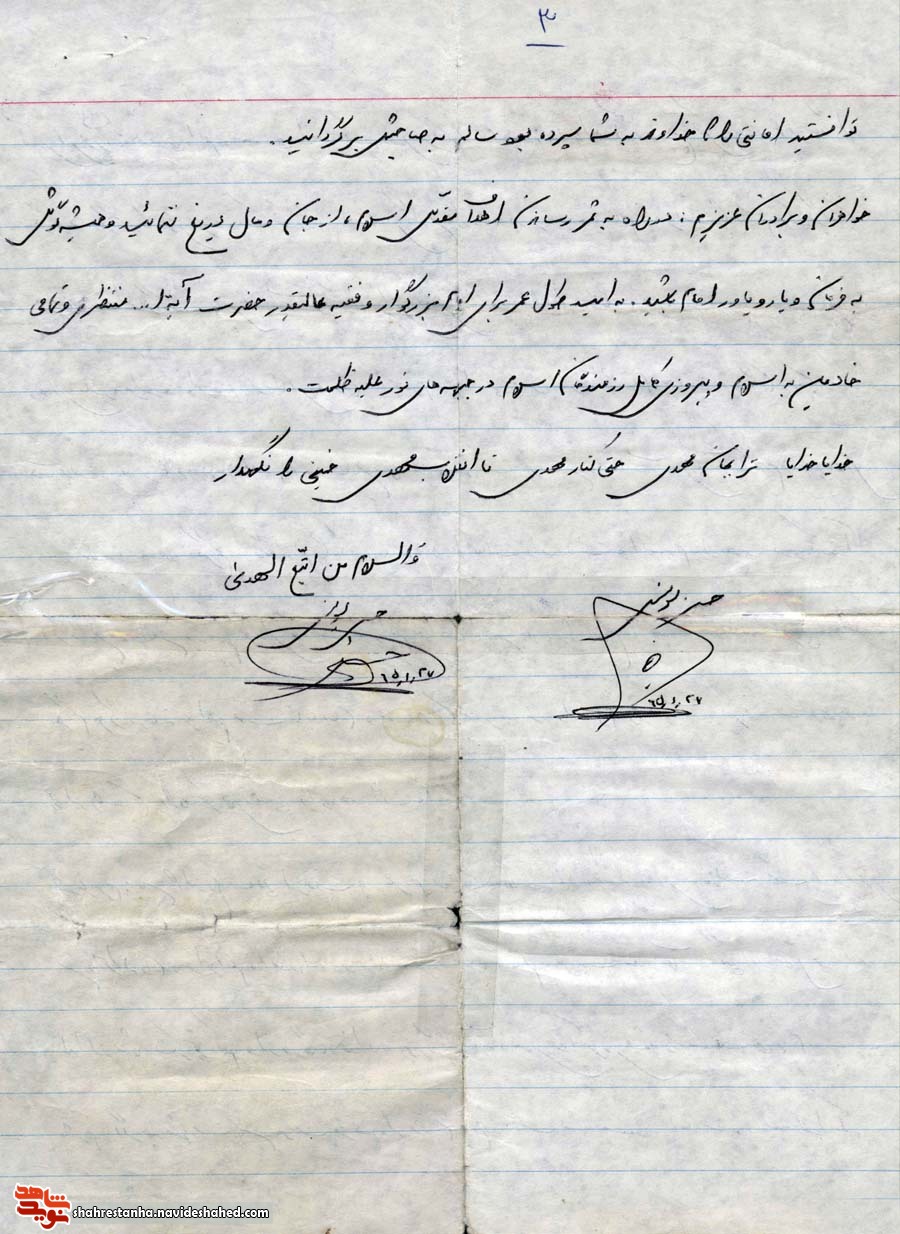 ۳
توانستید امانتی را که خداوند به شما سپرده بود سالم به صاحبش برگردانید.
خواهران و برادران عزیزم: در راه به ثمر رساندن اهداف مقدس اسلام، از جان و مال دریغ ننمائید و همیشه گوش
به فرمان و یار و یاور امام باشید. به امید طول عمر برای امام بزرگوار و فقیه عالیقدر حضرت آیة ا... منتظری و تمامی
خادمین به اسلام و پیروزی کامل رزمندگان اسلام در جبهه های نور علیه ظلمت.
خدایا خدایا ترا بجان مهدی حتی کنار مهدی تا انقلاب مهدی خمینی را نگهدار
والسلام من اتبع الهدی
حسن
۶۵،۱،۲۷ ۶۵،۱،۲۷
نوید شاهد
shahrestanha.navideshahed.com